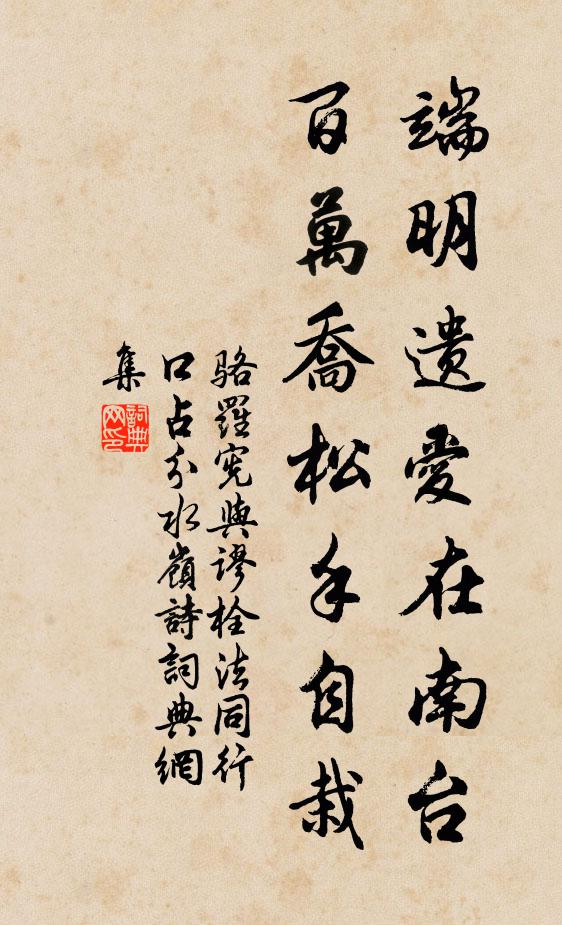 端明遺愛在南台
百萬喬松手自栽
駱羅憲與謬栓法同行
口占分水嶺詩詞典網
集
詞典网印